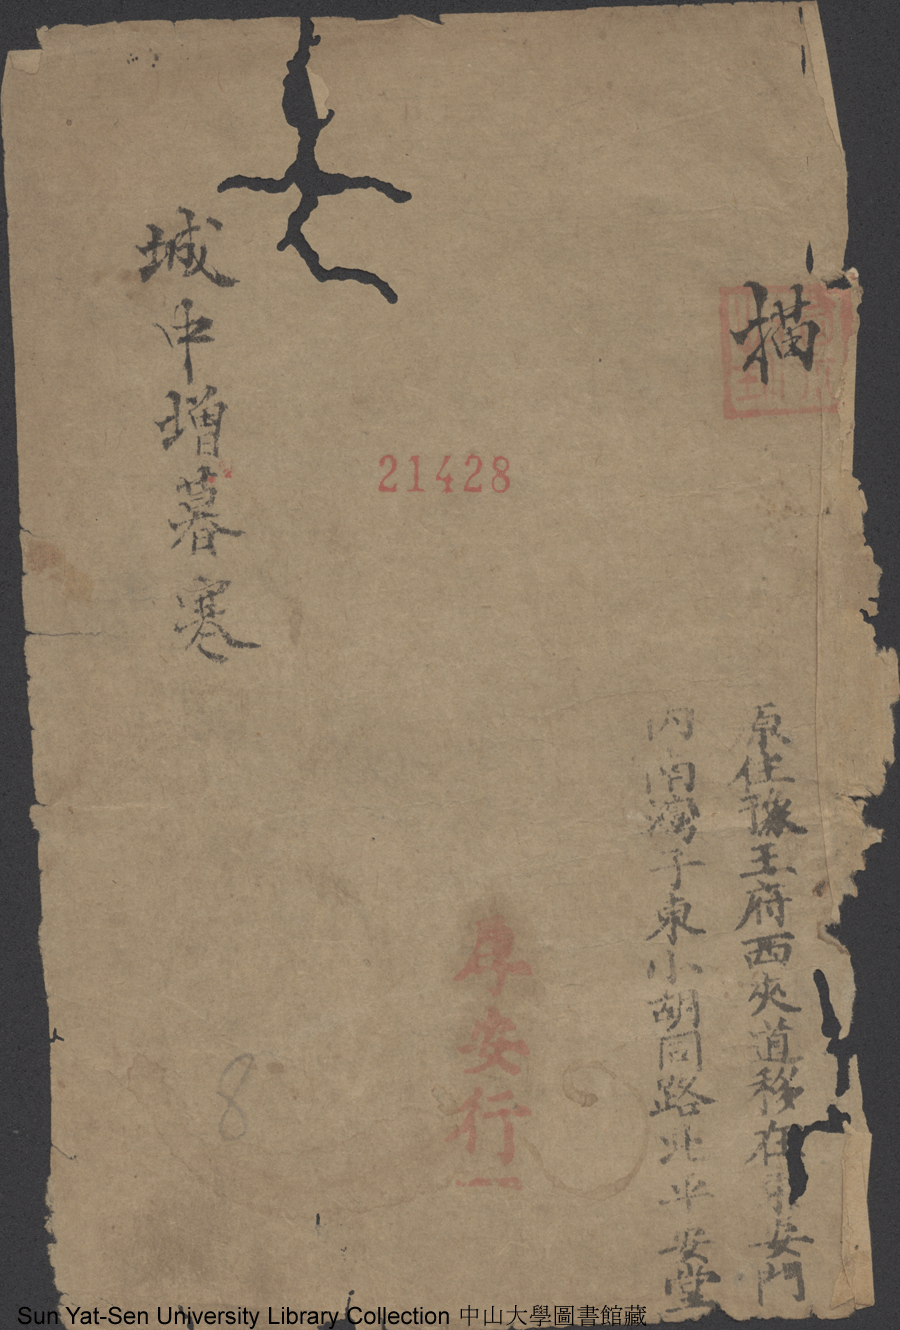 描
原住豫王府西夾道移在安門
内南灣子東小胡同路北平安堂
21428
厚安行
城中增暮寒
8
Sun Yat-Sen University Library Collection 中山大學圖書館藏